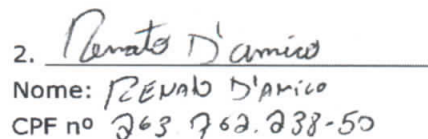 2. Renato D'amico
Nome: RENATO D'AMICO
CPF nº 263.762.238-50